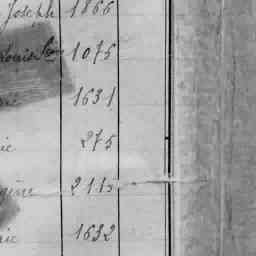 Joseph 1866
Louis 1075
ie 1631
ie 275
gène 2115
ie 1632